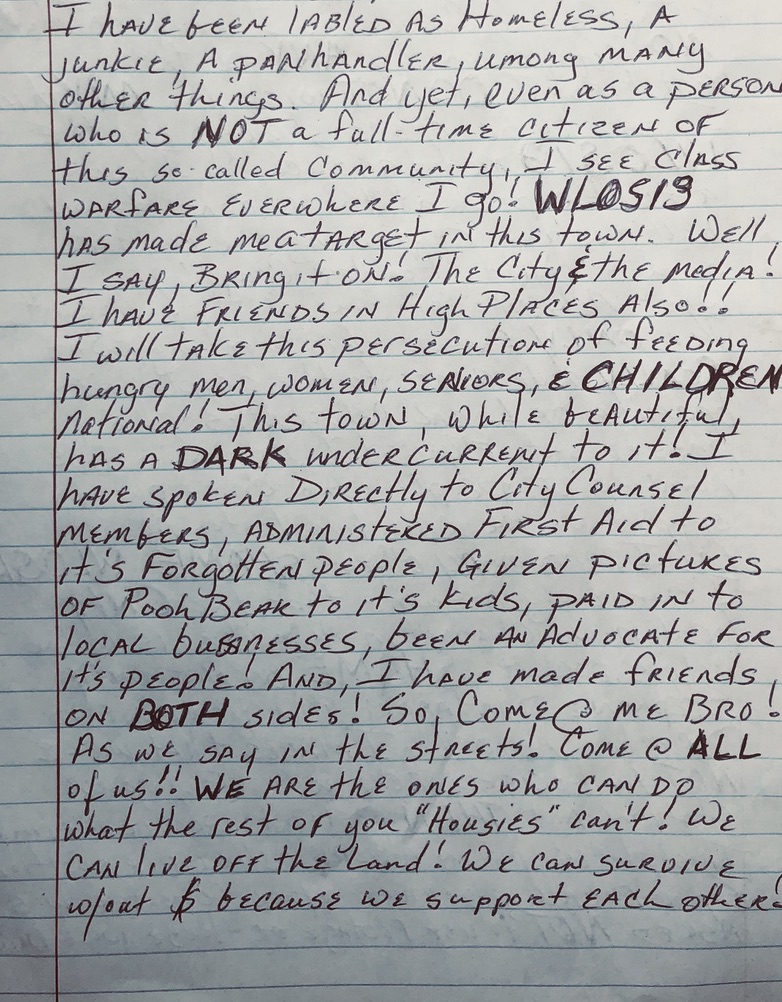 I HAVE BEEN LABLED AS HOMELESS, A
JUNKIE, A PANHANDLER, UMONG MANY
OTHER THINGS. AND YET, EVEN AS A PERSON
WHO IS NOT A FULL-TIME CITIZEN OF
THIS SO-CALLED COMMUNITY, I SEE CLASS
WARFARE EVERWHERE I GO! WLOS13
HAS MADE ME A TARGET IN THIS TOWN. WELL,
I SAY, BRING IT ON! THE CITY & THE MEDIA!
I HAVE FRIENDS IN HIGH PLACES ALSO!!
I WILL TAKE THIS PERSECUTION OF FEEDING
HUNGRY MEN, WOMEN, SENIORS, & CHILDREN
NATIONAL! THIS TOWN, WHILE BEAUTIFUL,
HAS A DARK UNDERCURRENT TO IT! I
HAVE SPOKEN DIRECTLY TO CITY COUNSEL
MEMBERS, ADMINISTERED FIRST AID TO
IT'S FORGOTTEN PEOPLE, GIVEN PICTURES
OF POOH BEAR TO IT'S KIDS, PAID IN TO
LOCAL BUSSNESSES, BEEN AN ADVOCATE FOR
IT'S PEOPLE. AND, I HAVE MADE FRIENDS,
ON BOTH SIDES! SO, COME @ ME BRO!
AS WE SAY IN THE STREETS! COME @ ALL
OF US!! WE ARE THE ONES WHO CAN DO
WHAT THE REST OF YOU "HOUSIES" CAN'T! WE
CAN LIVE OFF THE LAND! WE CAN SURVIVE
W/OUT $ BECAUSE WE SUPPORT EACH OTHER!